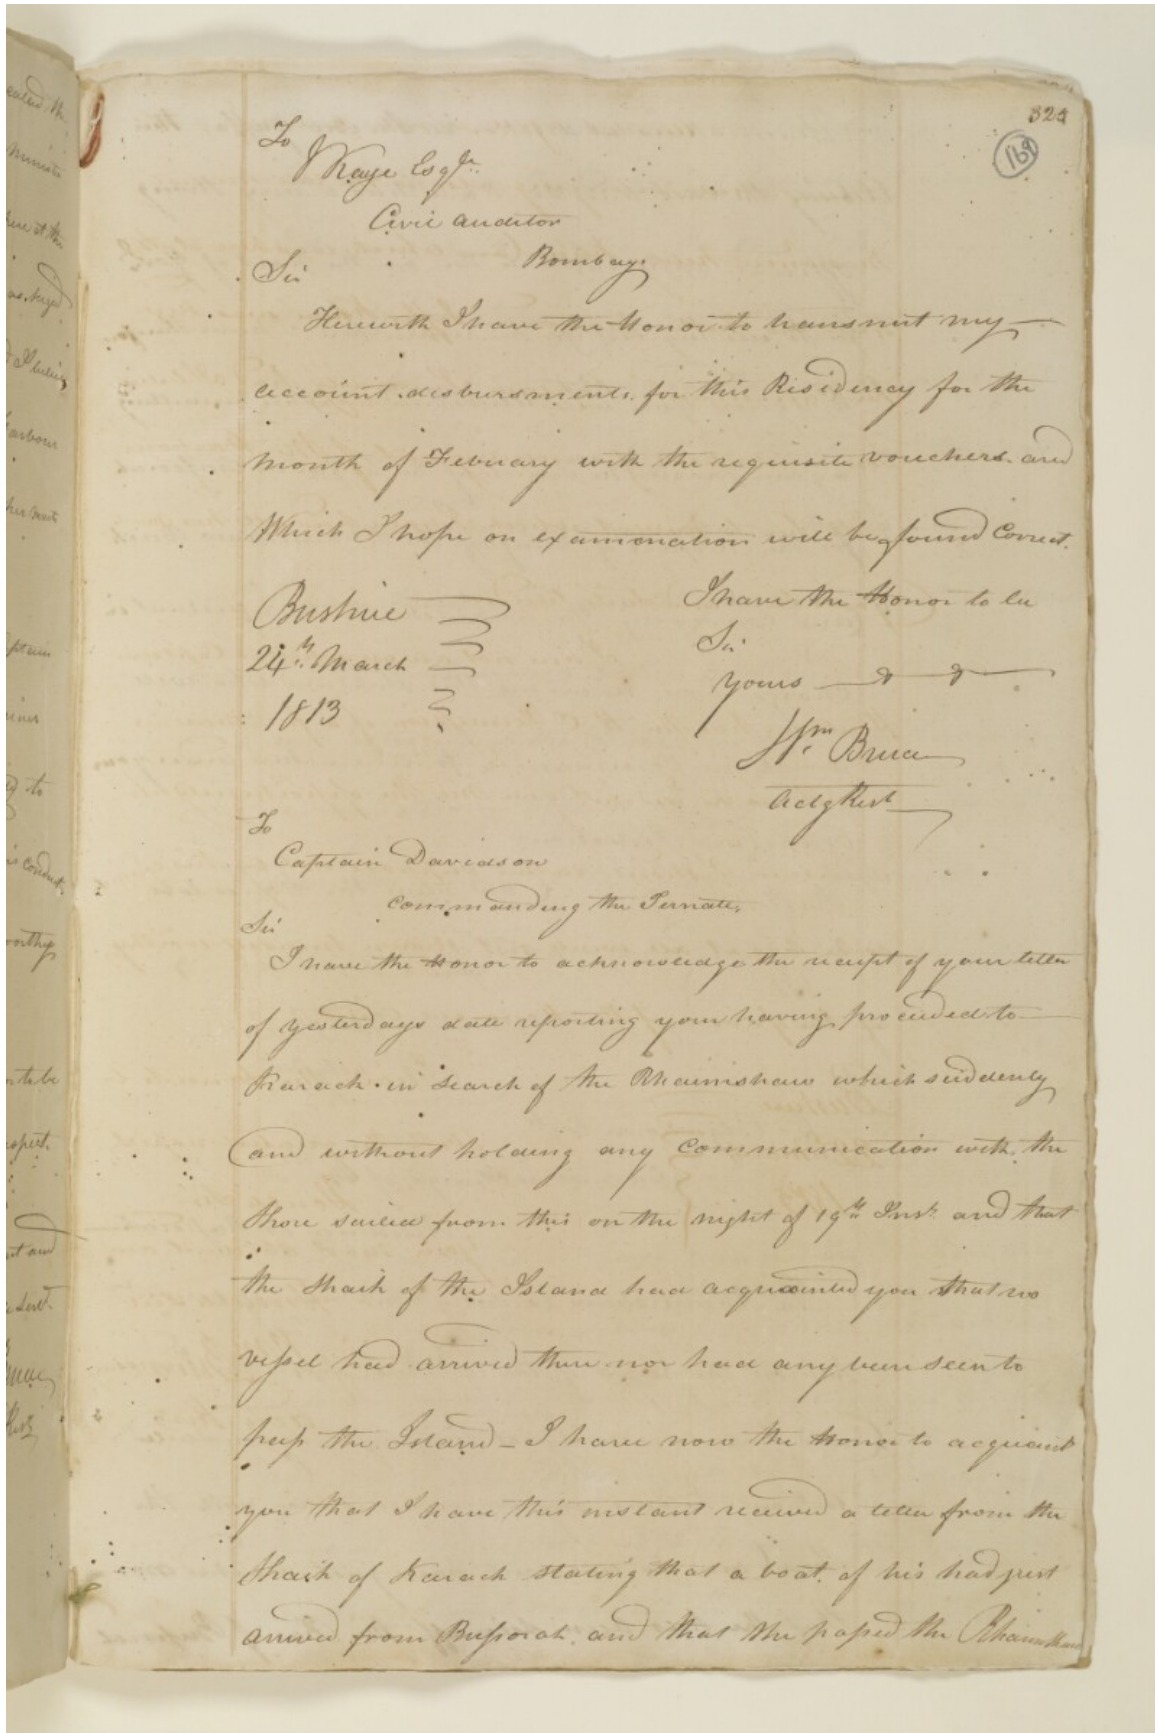 325
169
To
J Kaye Esqr.
Civil Auditor
Bombay
Sir
Herewith I have the Honor to transmit my
account disbursments for this Residency for the
month of Febuary with the requisite vouchers and
Which I hope on examination will be found Correct.
I have the Honor to be
Sir
yours
Wm Bruce
Actg Rest
Bushire
24th March
1813
To
Captain Davidson
Commanding the Ternate.
Sir
I have the Honor to acknowledge the receipt of your letter
of yesterdays date reporting your having proceeded to
Karack in search of the Rhaimshaw which suddenly
and without holding any communication with the
Shore sailed from this on the night of 19th Inst. and that
the Shaik of the Island had acquainted you that no
vessel had arrived there nor had any been seen to
pass the Island - I have now the Honor to acquaint
you that I have this instant received a letter from the
Shaik of Karack stating that a boat of his had just
arrived from Bussorah and that she passed the Rhaimshaw